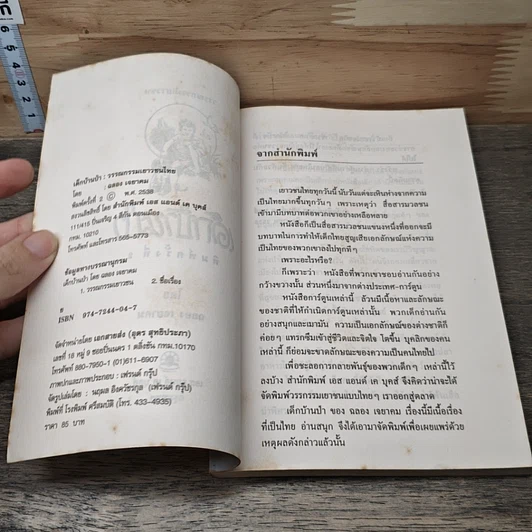 เด็กบ้านป่า : วรรณกรรมเยาวชนไทย
โดย : ฉลอง เจยาคม
พิมพ์ครั้งที่ 2 © พ.ศ. 2538
สงวนลิขสิทธิ์ โดย สำนักพิมพ์ เอส แอนด์ เค บุคส์
111/415 ปิ่นเจริญ 4 สีกัน ดอนเมือง
กทม. 10210
โทรศัพท์ และโทรสาร 565-5773
ข้อมูลทางบรรณานุกรม
เด็กบ้านป่า โดย ฉลอง เจยาคม
1. วรรณกรรมเยาวชน 2. ชื่อเรื่อง
ISBN 974-7244-04-7
จัดจำหน่ายโดย เอกสายส่ง (อุดร สุทธิประภา)
เลขที่ 18 หมู่ 9 ซอยปิ่นนคร 1 ตลิ่งชัน กทม.10170
โทรศัพท์ 880-7950-1 (01)611-6907
ภาพปกและภาพประกอบ : เฟรนด์ กรุ๊ป
จัดรูปเล่มโดย : นฤมล อิงควัชรกุล (เฟรนด์ กรุ๊ป)
พิมพ์ที่ โรงพิมพ์ ศรีสมบัติ (โทร. 433-4935)
ราคา 85 บาท
จากสำนักพิมพ์
เยาวชนไทยทุกวันนี้ นับวันแต่จะเหินห่างจากความ
เป็นไทยมากขึ้นทุกวันๆ เพราะเหตุว่า สื่อสารมวลชน
เข้ามามีบทบาทต่อพวกเขาอย่างเหลือหลาย
หนังสือก็เป็นสื่อสารมวลชนแขนงหนึ่งที่ออกจะมี
บทบาทในการทำให้เด็กไทยสูญเสียเอกลักษณ์แห่งความ
เป็นไทยของพวกเขาลงไปทุกทีๆ
เพราะอะไรหรือ?
ก็เพราะว่า หนังสือที่พวกเขาชอบอ่านกันอย่าง
กว้างขวางนั้น ส่วนหนึ่งมาจากต่างประเทศ-การ์ตูน
หนังสือการ์ตูนเหล่านี้ ล้วนมีเนื้อหาและลักษณะ
ของชาติที่ให้กำเนิดการ์ตูนเหล่านั้น พวกเด็กอ่านกัน
อย่างสนุกและเมามัน ความเป็นเอกลักษณ์ของต่างชาติก็
ค่อยๆ แทรกซึมเข้าสู่ชีวิตและจิตใจ โตขึ้น บุคลิกของคน
เหล่านี้ ก็ย่อมจะขาดลักษณะของความเป็นคนไทยไป
เพื่อชะลอการกลายพันธุ์ของพวกเด็กๆ เหล่านี้ไว้
ลงบ้าง สำนักพิมพ์ เอส แอนด์ เค บุคส์ จึงคิดว่าน่าจะได้
จัดพิมพ์วรรกรรมเยาชนแบบไทยๆ เราออกสู่ตลาด
เด็กบ้านป่า ของ ฉลอง เจยาคม เรื่องนี้มีเนื้อเรื่อง
ที่เป็นไทย อ่านสนุก จึงได้เอามาจัดพิมพ์เพื่อเผยแพร่ด้วย
เหตุผลดังกล่าวแล้วนั้น
6 5 4 3 2 1